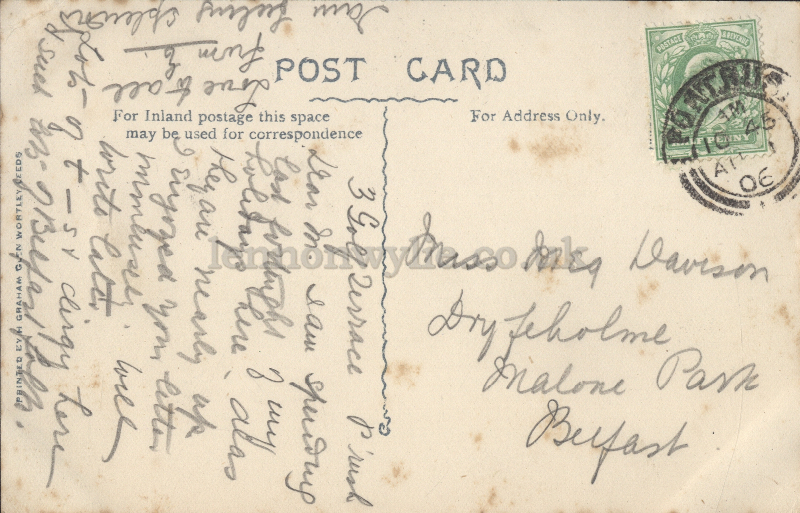 POST CARD
For Inland postage this space
may be used for correspondence
For Address Only.
POSTAGE & REVENUE
PORTRUSH
AM
10 45
06
Miss Meg Davison
Dryfeholme
Malone Park
Belfast
3 Golf Terrace P'rush
Dear M. I am spending
last fortnight of my
holidays here, alas
they are nearly up
I enjoyed your letter
immensely. will
write later
Love to all
from
I am feeling splendid
Lots of clergy here
& Belfast folks.
PRINTED BY H GRAHAM GLEN WORTLEY LEEDS
lennonwylie.co.uk